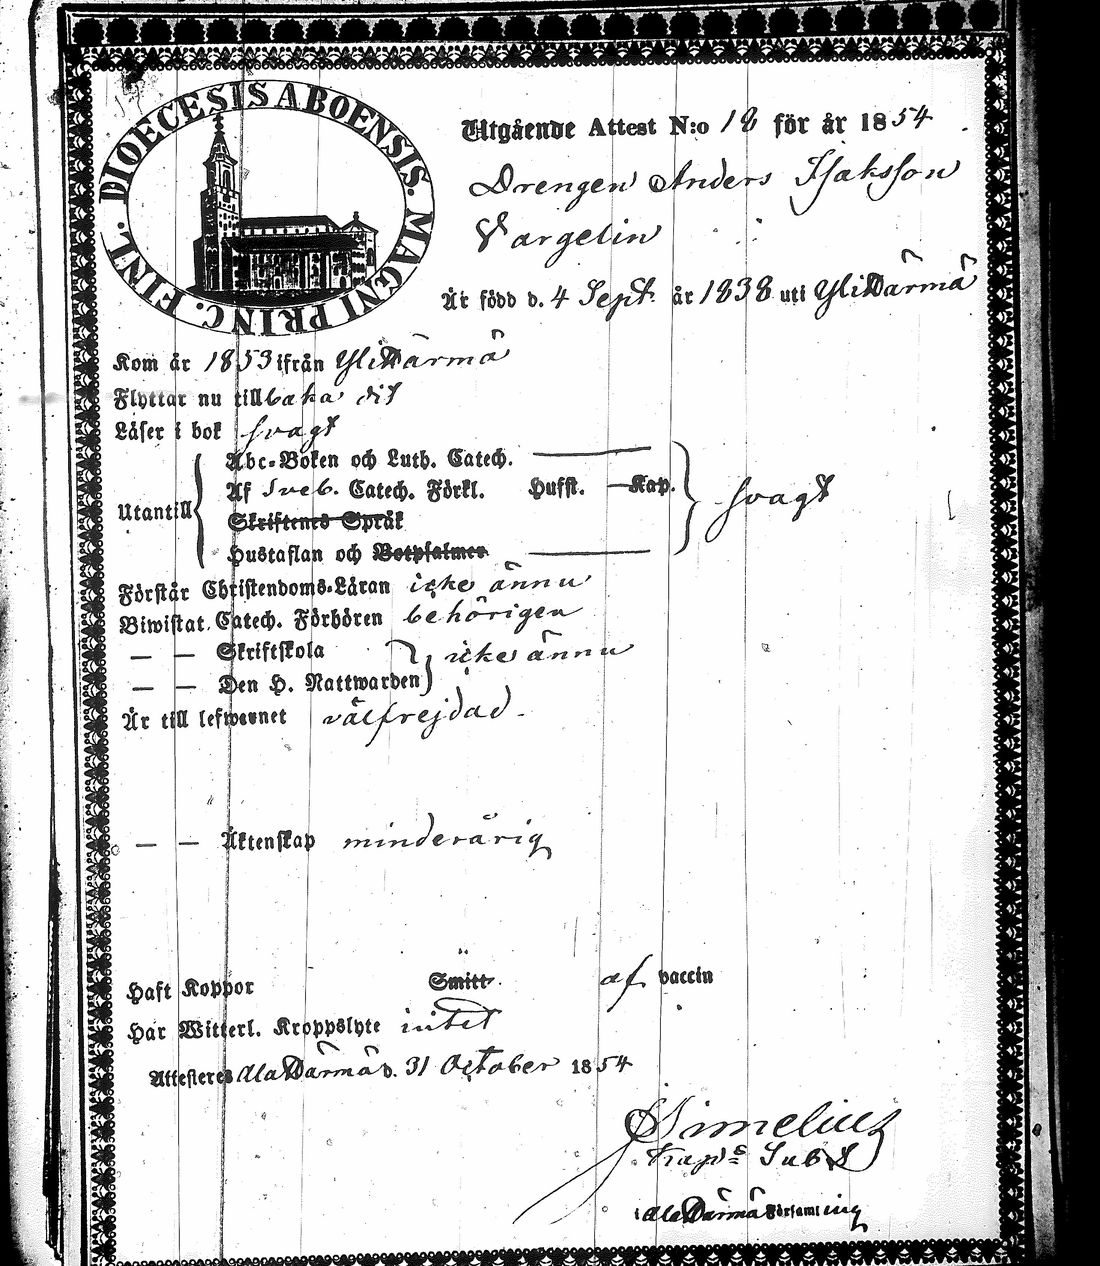 DIOECESIS ABOENSIS. MAGNI PRINC. FINL.
Utgående Attest N:o 18 för år 1854.
Drengen Anders Isaksson
Vargelin
Är född d. 4 Sept. år 1838 uti Yli Därmä
Kom år 1853 ifrån Yli Därmä
Flyttar nu tillbaka dit
Läser i bok svagt
Utantill
Abc-Boken och Luth. Catech.
Af Sveb. Catech. Förkl. Husst. Kap.
svagt
Skriftenes Språk
Hustaflan och Botpsalmer
Förstår Christendoms-Läran icke ännu
Biwistat Catech. Förhören behörigen
— — Skriftskola
icke ännu
— — Den H. Nattwarden
Är till lefwernet välfrejdad.
— — Äktenskap minderårig
Haft Koppor Smitt. af vaccin
Har Witterl. Kroppslyte intet
Attesteras Ala Därmä d. 31 October 1854
Simelius
Kap:s Subst
i Ala Därmä Församling